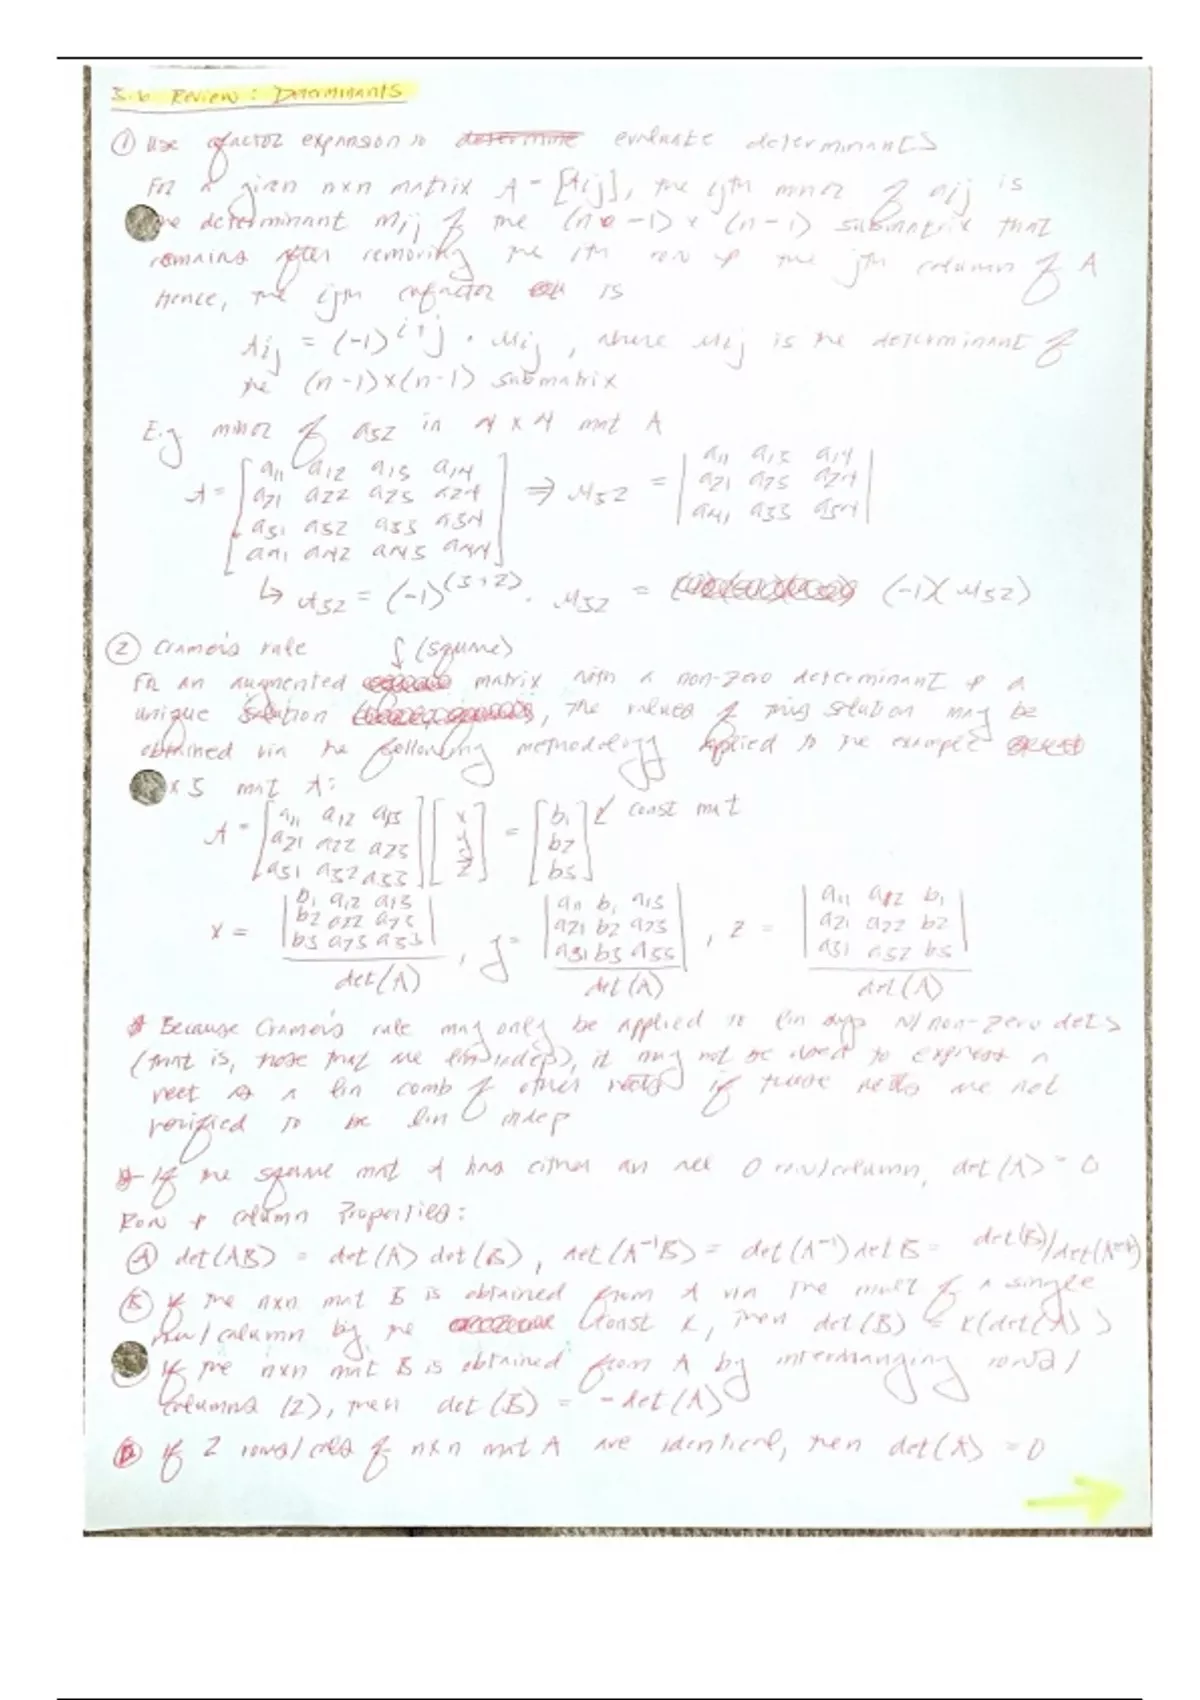 3.6 Review: Determinants
① Use cofactor expansion to determine evaluate determinants
For a given nxn matrix A = [Aij], the ijth minor of aij is
the determinant Mij of the (n-1) x (n-1) submatrix that
remains after removing the ith row & the jth column of A
Hence, the ijth cofactor is
Aij = (-1)^(i+j) · Mij, where Mij is the determinant of
the (n-1)x(n-1) submatrix
E.g minor of a32 in 4x4 mat A
A = [a11 a12 a13 a14 ⇒ M32 = |a11 a13 a14|
a21 a22 a23 a24 |a21 a23 a24|
a31 a32 a33 a34 |a41 a33 a34|
a41 a42 a43 a44]
↳ A32 = (-1)^(3+2) · M32 = (-1)(M32)
② Cramer's rule (square)
For an augmented matrix with a non-zero determinant & a
unique solution, the values of this solution may be
obtained via the following methodology applied to the example
x 3 mat A:
A = [a11 a12 a13 [x = [b1 ↙ const mat
a21 a22 a23 y b2
a31 a32 a33] z] b3]
x = |b1 a12 a13| , y = |a11 b1 a13| , z = |a11 a12 b1|
|b2 a22 a23| |a21 b2 a23| |a21 a22 b2|
|b3 a23 a33| |a31 b3 a33| |a31 a32 b3|
det(A) det(A) det(A)
* Because Cramer's rule may only be applied to lin sys w/ non-zero dets
(that is, those that are lin indep), it may not be used to express a
vect as a lin comb of other vects if these vects are not
verified to be lin indep
- If the square mat A has either an all 0 row/column, det(A) = 0
Row & column Properties:
Ⓐ det(AB) = det(A) det(B), det(A⁻¹B) = det(A⁻¹) det B = det(B)/
Ⓑ If the nxn mat B is obtained from A via the mult of a single
row/column by the const K, then det(B) = K(det(A))
If the nxn mat B is obtained from A by interchanging rows/
columns (2), then det(B) = -det(A)
Ⓓ If 2 rows/cols of nxn mat A are identical, then det(A) = 0